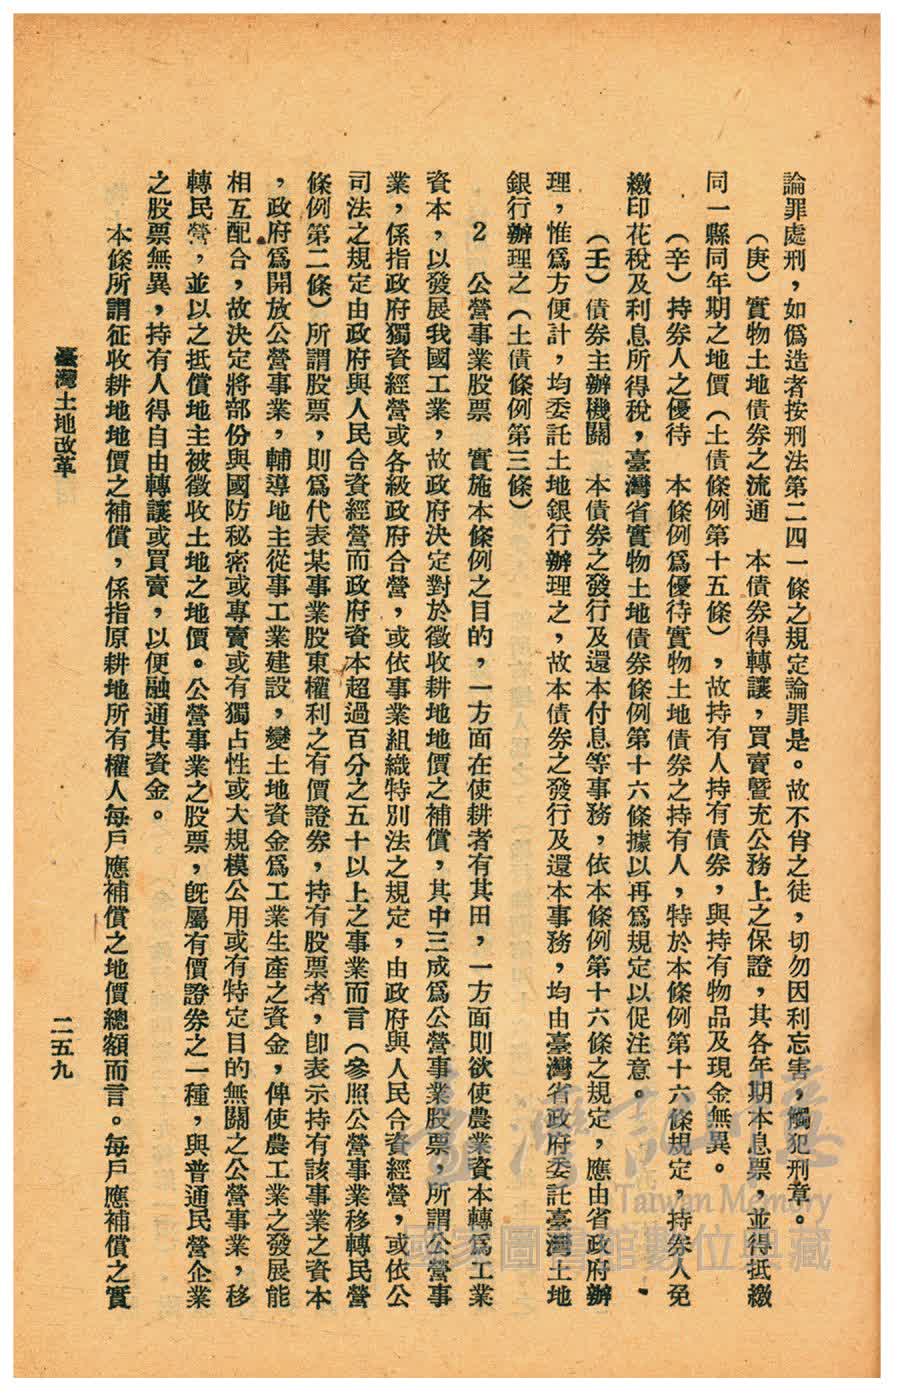 論罪處刑，如僞造者按刑法第二四一條之規定論罪是。故不肖之徒，切勿因利忘害，觸犯刑章。
（庚）實物土地債券之流通　本債券得轉讓，買賣暨充公務上之保證，其各年期本息票，並得抵繳
同一縣同年期之地價（土債條例第十五條），故持有人持有債券，與持有物品及現金無異。
（辛）持券人之優待　本條例爲優待實物土地債券之持有人，特於本條例第十六條規定，持券人免
繳印花稅及利息所得稅，臺灣省實物土地債券條例第十六條據以再爲規定以促注意。
（壬）債券主辦機關　本債券之發行及還本付息等事務，依本條例第十六條之規定，應由省政府辦
理，惟爲方便計，均委託土地銀行辦理之，故本債券之發行及還本事務，均由臺灣省政府委託臺灣土地
銀行辦理之（土債條例第三條）
2　公營事業股票　實施本條例之目的，一方面在使耕者有其田，一方面則欲使農業資本轉爲工業
資本，以發展我國工業，故政府決定對於徵收耕地地價之補償，其中三成爲公營事業股票，所謂公營事
業，係指政府獨資經營或各級政府合營，或依事業組織特別法之規定，由政府與人民合資經營，或依公
司法之規定由政府與人民合資經營而政府資本超過百分之五十以上之事業而言（參照公營事業移轉民營
條例第二條）所謂股票，則爲代表某事業股東權利之有價證券，持有股票者，卽表示持有該事業之資本
，政府爲開放公營事業，輔導地主從事工業建設，變土地資金爲工業生產之資金，俾使農工業之發展能
相互配合，故決定將部份與國防秘密或專賣或有獨占性或大規模公用或有特定目的無關之公營事業，移
轉民營，並以之抵償地主被徵收土地之地價。公營事業之股票，旣屬有價證券之一種，與普通民營企業
之股票無異，持有人得自由轉讓或買賣，以便融通其資金。
本條所謂征收耕地地價之補償，係指原耕地所有權人每戶應補償之地價總額而言。每戶應補償之實
臺灣土地改革
二五九
臺灣記憶
Taiwan Memory
國家圖書館數位典藏